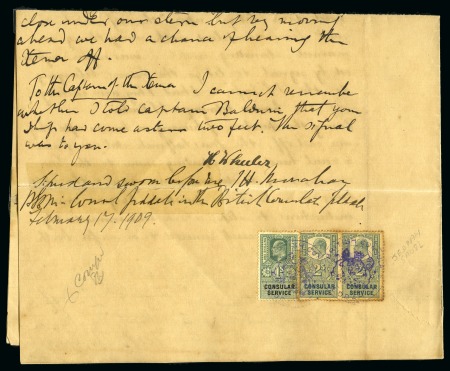 close under our stern but by moving
ahead we had a chance of hearing the
Xema off.
To the Captain of the Xema I cannot remember
whether I told Captain Baldwin that you
ship had come astern two feet. The signal
was to you.
H Wheeler
Signed and sworn before me, J.H. Monahan
Consul
February 17. 1909.
CONSULAR SERVICE
CONSULAR SERVICE
CONSULAR SERVICE